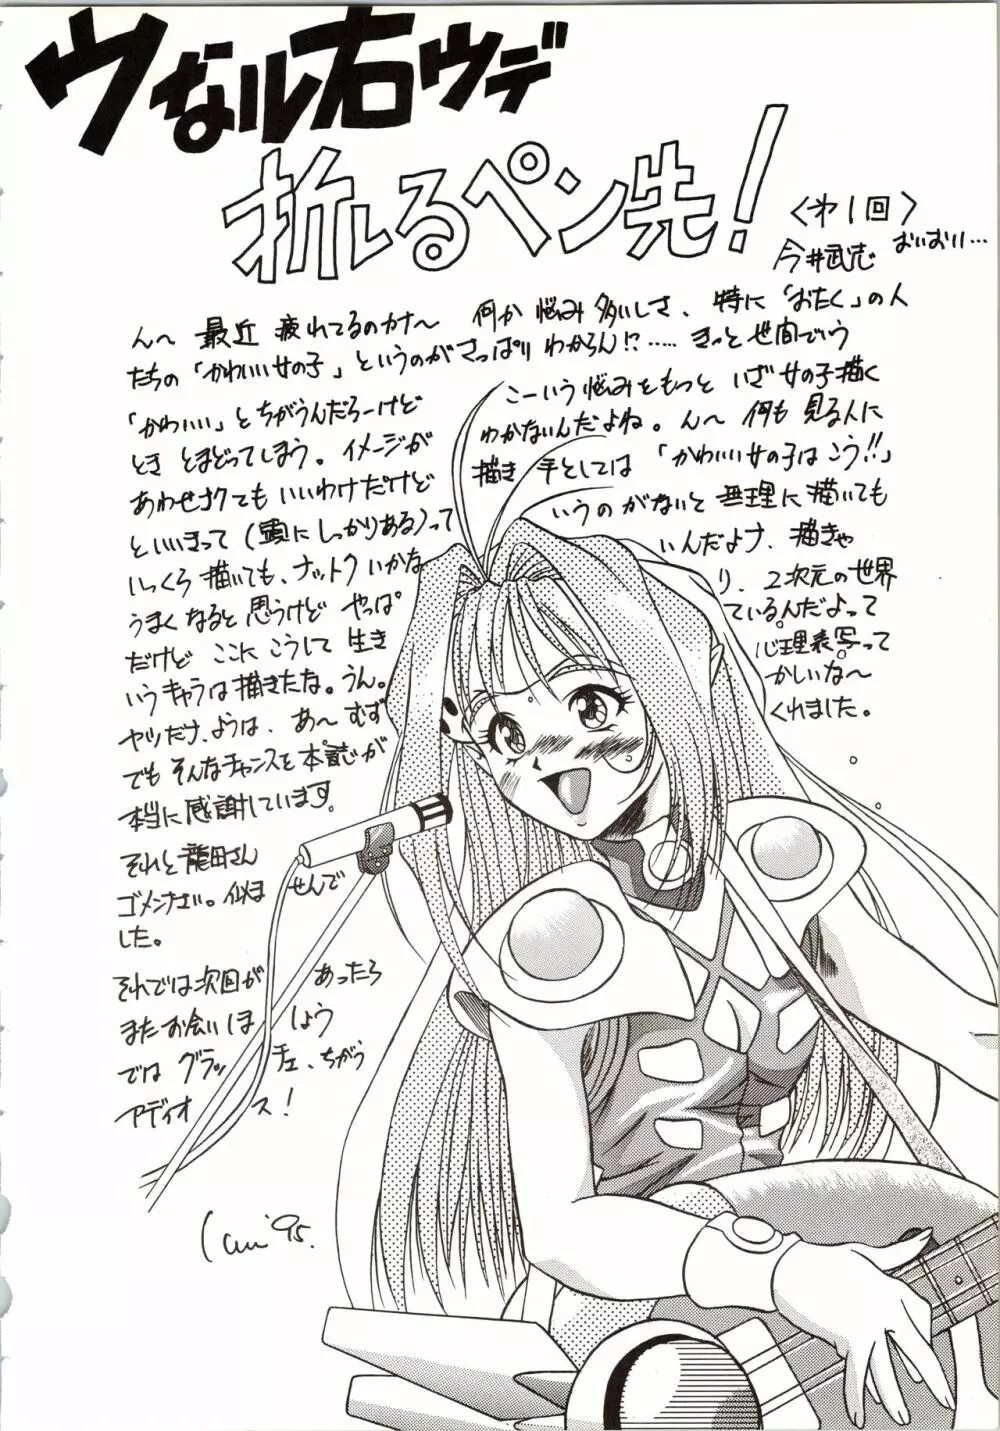 ウなル右ウデ
折しるペン先!
〈オ1回〉
今井武志 おいおい…
ん〜 最近 疲れてるのカナ〜 何か 悩み 多いしさ、 特に「おたく」の人
たちの「かわいい女の子」というのがさっぱり わからん!?…… きっと 世間でいう
「かわいい」とちがうんだろーけど こーいう悩みをもっと いざ 女の子描く
とき とまどってしまう。イメージが わかないんだよね。ん〜 何も 見る人に
あわせナクても いいわけだけど 描き手としては 「かわいい女の子は こう!!」
といいきって(頭にしっかりある)って いうのがないと 無理に描いても
いっくら 描いても、ナットク いかな いんだよナ、描きゃ
うまくなると 思うけど やっぱ り、2次元の世界
だけど ここに こうして 生き ているんだよって
いうキャラは描きたな。うん。 心理表写って
ヤツだナ、ようは、あ〜 むず かしいな〜
でも そんなチャンスを本誌が くれました。
本当に感謝しています。
それと龍田さん
ゴメンナさい。似ま せんで
した。
それでは次回が あったら
また お会いしま しょう
では グラッ チェ、ちがう
アディオ ス!
Imai '95.